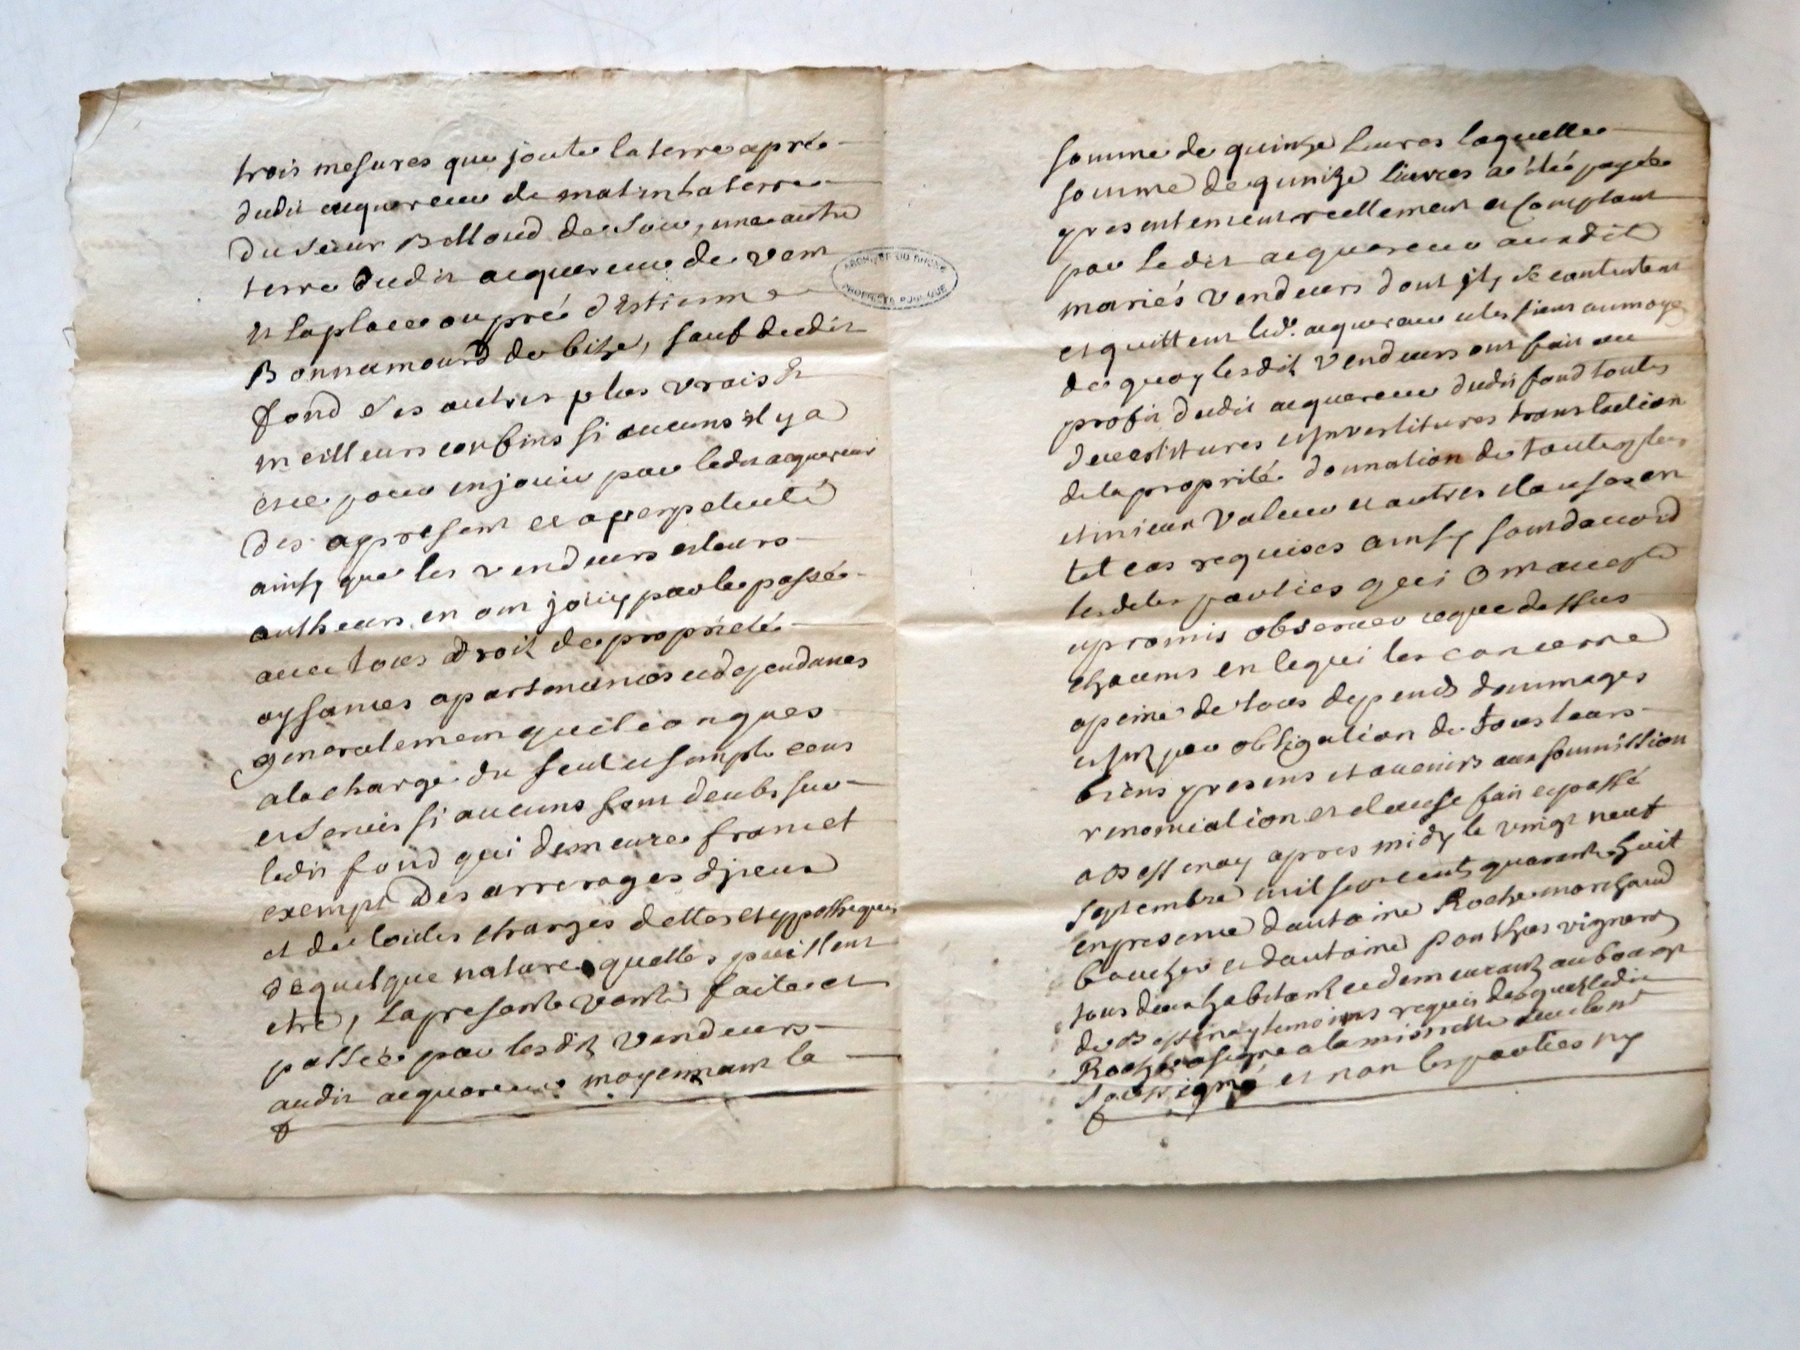 trois mesures que joute la terre apré
dudit acquereur de matin la terre
du sieur Belloud de soir, une autre
terre dudit acquereur de vent
et la place ou pré d'Estienne
Bonnamourd de bize, sauf dudit
fond ses autres plus vrais et
meilleurs confins si aucuns il y a
pour en jouir par ledit acquereur
des apresent et a perpetuité
ainsy que les vendeurs et leurs
autheurs en ont jouy par le passé
avec tous droit de proprieté
aysances apartenances et dependances
generalement quelconques
a la charge du seul et simple cens
et servis si aucuns sont deubs sur
ledit fond qui demeure franc et
exempt des arrerages d'jceux
et de toutes charges dettes et ypotheques
de quelque nature quelles puissent
etre, la presente vente faite et
passée par lesdit vendeurs
audit acquereur moyennant la
ARCHIVES DU RHONE
PROPRIETE PUBLIQUE
somme de quinze livres laquelle
somme de quinze livres a été payée
presentement reellement et comptant
par ledit acquereur ausdit
mariés vendeurs dont jls se contentent
et quittent led. acquereur et les siens au moyen
de quoy lesdit vendeurs ont fait au
profit dudit acquereur dudit fond toutes
devestitures et jnvestitures translation
de la proprité donnation de toutes plus
et mieux valeur et autres clauses en
tel cas requises ainsy sont d'accord
lesdites parties qui ont accepté
et promis observer ce que dessus
chacuns en ce qui les concerne
a peine de tous depends dommages
et jnt par obligation de tous leurs
biens presens et avenirs aux soumission
renonciation et clause fait et passé
a Bessenay apres midy le vingt neuf
septembre mil sept cents quarante huit
en presence d'antoine Roche marchand
boucher et d'antoine ponthus vigneron
tous deux habitants et demeurants au bourg
de Bessenay temoins requis desquels ledit
Roche a signé a la minutte avec le not
soussigné et non les parties ny